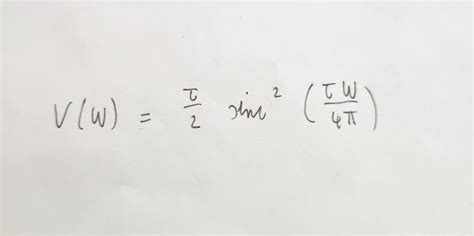 V(W) = τ/2 sinc² (τW/4π)